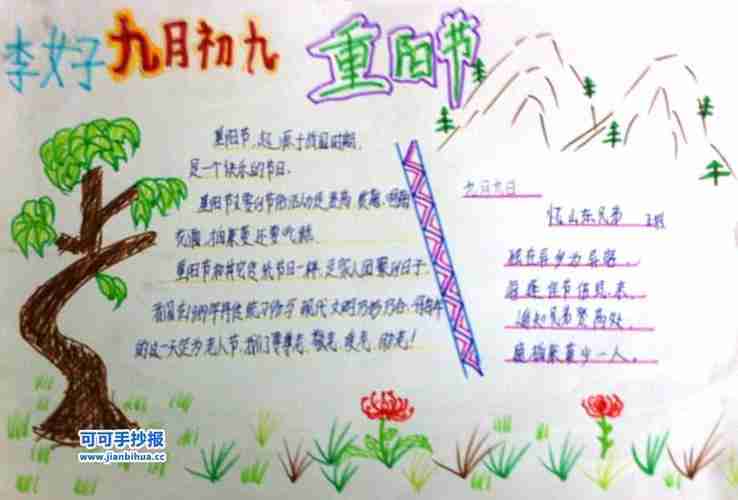 李女子 九月初九 重阳节
重阳节,起源于战国时期,
是一个快乐的节日。
重阳节主要的节俗活动是登高 赏菊、
花酒,插茱萸还要吃糕。
重阳节和其它传统节日一样,是家人团聚的日子。
我国在1989年将传统习俗与现代文明巧妙
的这一天定为老人节,我们要尊老、敬老、爱老、助老!
九月九日
忆山东兄弟 王维
独在异乡为异客,
每逢佳节倍思亲。
遥知兄弟登高处,
遍插茱萸少一人。
可可手抄报
www.jianbihua.cc